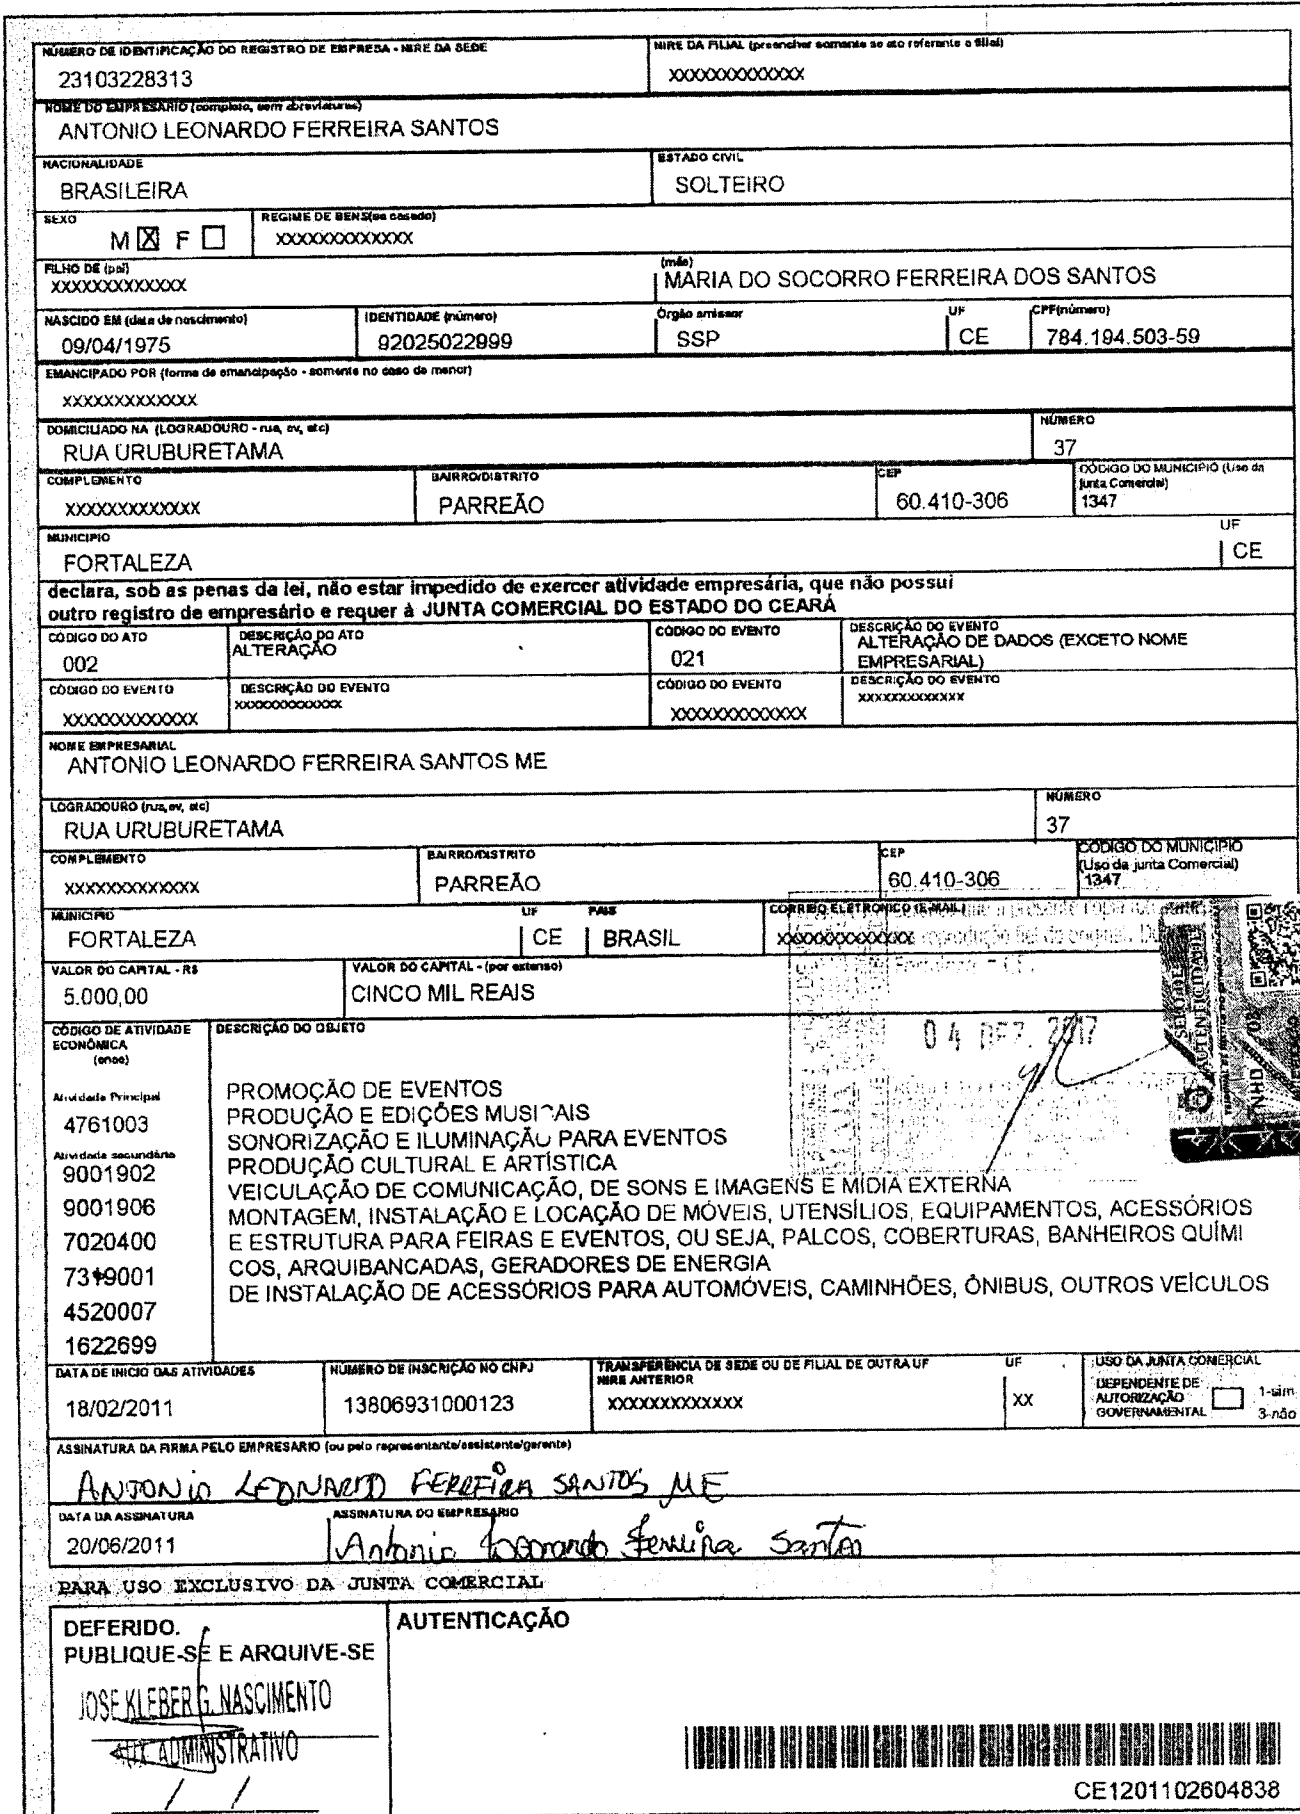 NÚMERO DE IDENTIFICAÇÃO DO REGISTRO DE EMPRESA - NIRE DA SEDE
23103228313
NIRE DA FILIAL (preencher somente se ato referente a filial)
XXXXXXXXXXXXX
NOME DO EMPRESÁRIO (completo, sem abreviaturas)
ANTONIO LEONARDO FERREIRA SANTOS
NACIONALIDADE
BRASILEIRA
ESTADO CIVIL
SOLTEIRO
SEXO
M ☒ F ☐
REGIME DE BENS(se casado)
XXXXXXXXXXXXX
FILHO DE (pai)
XXXXXXXXXXXXX
(mãe)
MARIA DO SOCORRO FERREIRA DOS SANTOS
NASCIDO EM (data de nascimento)
09/04/1975
IDENTIDADE (número)
92025022999
Órgão emissor
SSP
UF
CE
CPF(número)
784.194.503-59
EMANCIPADO POR (forma de emancipação - somente no caso de menor)
XXXXXXXXXXXXX
DOMICILIADO NA (LOGRADOURO - rua, av, etc)
RUA URUBURETAMA
NÚMERO
37
COMPLEMENTO
XXXXXXXXXXXXX
BAIRRO/DISTRITO
PARREÃO
CEP
60.410-306
CÓDIGO DO MUNICÍPIO (Uso da
junta Comercial)
1347
MUNICIPIO
FORTALEZA
UF
CE
declara, sob as penas da lei, não estar impedido de exercer atividade empresária, que não possui
outro registro de empresário e requer à JUNTA COMERCIAL DO ESTADO DO CEARÁ
CÓDIGO DO ATO
002
DESCRIÇÃO DO ATO
ALTERAÇÃO
CÓDIGO DO EVENTO
021
DESCRIÇÃO DO EVENTO
ALTERAÇÃO DE DADOS (EXCETO NOME
EMPRESARIAL)
CÓDIGO DO EVENTO
XXXXXXXXXXXXX
DESCRIÇÃO DO EVENTO
XXXXXXXXXXXXX
CÓDIGO DO EVENTO
XXXXXXXXXXXXX
DESCRIÇÃO DO EVENTO
XXXXXXXXXXXXX
NOME EMPRESARIAL
ANTONIO LEONARDO FERREIRA SANTOS ME
LOGRADOURO (rua,av, etc)
RUA URUBURETAMA
NÚMERO
37
COMPLEMENTO
XXXXXXXXXXXXX
BAIRRO/DISTRITO
PARREÃO
CEP
60.410-306
CÓDIGO DO MUNICÍPIO
(Uso da junta Comercial)
1347
MUNICIPIO
FORTALEZA
UF
CE
PAIS
BRASIL
CORREIO ELETRONICO (E-MAIL)
XXXXXXXXXXXXX
VALOR DO CAPITAL - R$
5.000,00
VALOR DO CAPITAL - (por extenso)
CINCO MIL REAIS
04 DEZ. 2017
SELO DE
AUTENTICIDADE
CÓDIGO DE ATIVIDADE
ECONÔMICA
(cnae)
DESCRIÇÃO DO OBJETO
Atividade Principal
4761003
Atividade secundária
9001902
9001906
7020400
7319001
4520007
1622699
PROMOÇÃO DE EVENTOS
PRODUÇÃO E EDIÇÕES MUSICAIS
SONORIZAÇÃO E ILUMINAÇÃO PARA EVENTOS
PRODUÇÃO CULTURAL E ARTÍSTICA
VEICULAÇÃO DE COMUNICAÇÃO, DE SONS E IMAGENS E MÍDIA EXTERNA
MONTAGEM, INSTALAÇÃO E LOCAÇÃO DE MÓVEIS, UTENSÍLIOS, EQUIPAMENTOS, ACESSÓRIOS
E ESTRUTURA PARA FEIRAS E EVENTOS, OU SEJA, PALCOS, COBERTURAS, BANHEIROS QUÍMI
COS, ARQUIBANCADAS, GERADORES DE ENERGIA
DE INSTALAÇÃO DE ACESSÓRIOS PARA AUTOMÓVEIS, CAMINHÕES, ÔNIBUS, OUTROS VEÍCULOS
DATA DE INICIO DAS ATIVIDADES
18/02/2011
NÚMERO DE INSCRIÇÃO NO CNPJ
13806931000123
TRANSFERÊNCIA DE SEDE OU DE FILIAL DE OUTRA UF
NIRE ANTERIOR
XXXXXXXXXXXXX
UF
XX
USO DA JUNTA COMERCIAL
DEPENDENTE DE
AUTORIZAÇÃO
GOVERNAMENTAL ☐
1-sim
3-não
ASSINATURA DA FIRMA PELO EMPRESÁRIO (ou pelo representante/assistente/gerente)
ANTONIO LEONARDO FERREIRA SANTOS ME
DATA DA ASSINATURA
20/06/2011
ASSINATURA DO EMPRESÁRIO
Antonio Leonardo Ferreira Santos
PARA USO EXCLUSIVO DA JUNTA COMERCIAL
DEFERIDO.
PUBLIQUE-SE E ARQUIVE-SE
JOSE KLEBER G. NASCIMENTO
AUX. ADMINISTRATIVO
/ /
AUTENTICAÇÃO
CE1201102604838